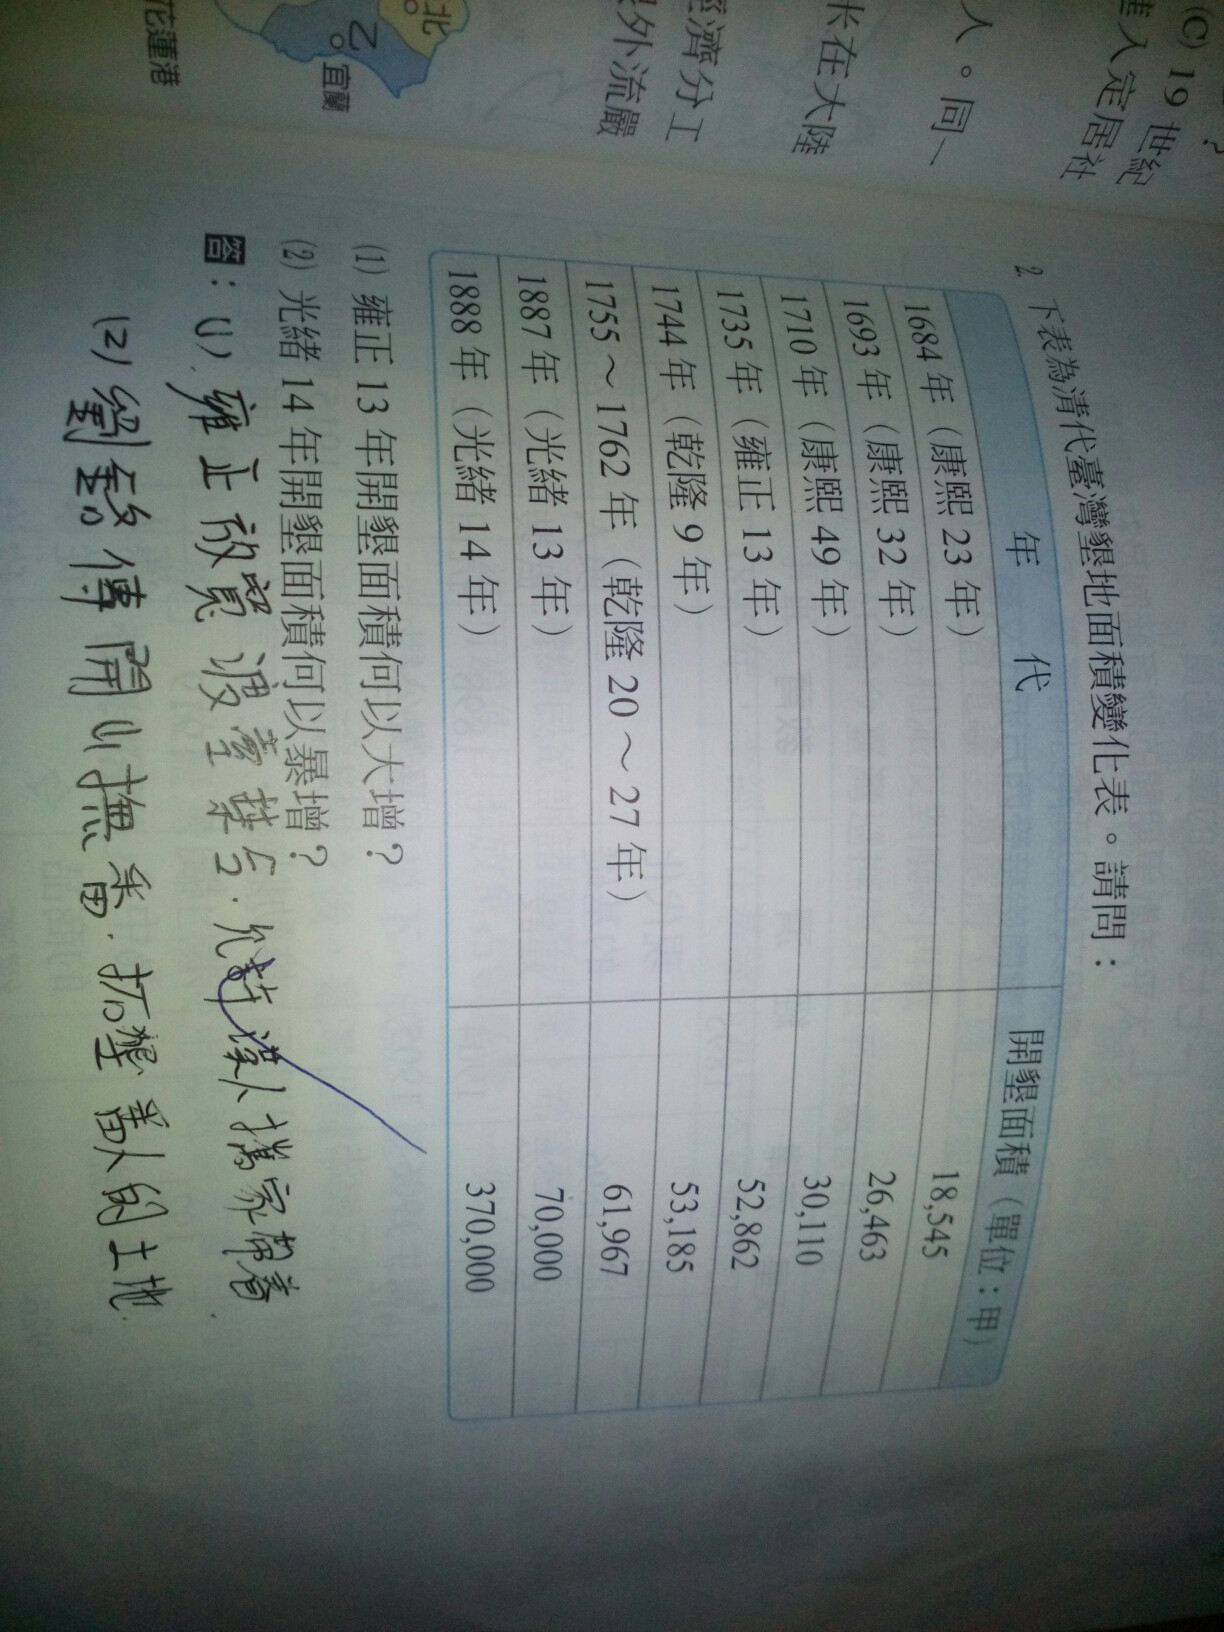 (C) 19 世紀
進入定居社
人。同一
卡在大陸
經濟分工
外流嚴
北
乙
宜蘭
花蓮港
2. 下表為清代臺灣墾地面積變化表。請問：
年 代 開墾面積（單位：甲）
1684 年（康熙 23 年） 18,545
1693 年（康熙 32 年） 26,463
1710 年（康熙 49 年） 30,110
1735 年（雍正 13 年） 52,862
1744 年（乾隆 9 年） 53,185
1755～1762 年（乾隆 20～27 年） 61,967
1887 年（光緒 13 年） 70,000
1888 年（光緒 14 年） 370,000
(1) 雍正 13 年開墾面積何以大增？
(2) 光緒 14 年開墾面積何以暴增？
答：(1). 雍正放寬渡臺禁令．允許漢人攜家帶眷．
(2) 劉銘傳開山撫番．拓墾番人的土地．